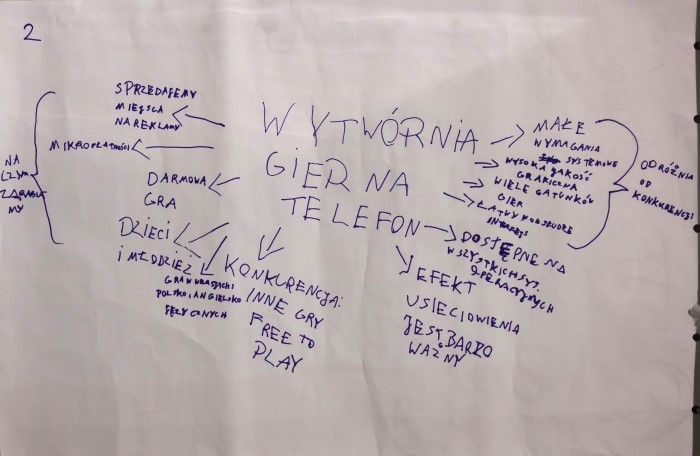 2
SPRZEDAJEMY
MIEJSCA
NA REKLAMY
MIKROPŁATNOŚCI
NA
CZYM
ZARABIA
MY
DARMOWA
GRA
DZIECI
I MŁODZIEŻ
GRA W WERSJACH
POLSKO I ANGIELSKO
JĘZYCZNYCH
WYTWÓRNIA
GIER NA
TELEFON
KONKURENCJA:
INNE GRY
FREE TO
PLAY
MAŁE
WYMAGANIA
SYSTEMOWE
WYSOKA JAKOŚĆ
GRAFICZNA
WIELE GATUNKÓW
GIER
ŁATWY W OBSŁUDZE
INTERFEJS
DOSTĘPNE NA
WSZYSTKICH SYS.
OPERACYJNYCH
ODRÓŻNIA
OD
KONKURENCJI
EFEKT
USIECIOWIENIA
JEST BARDZO
WAŻNY